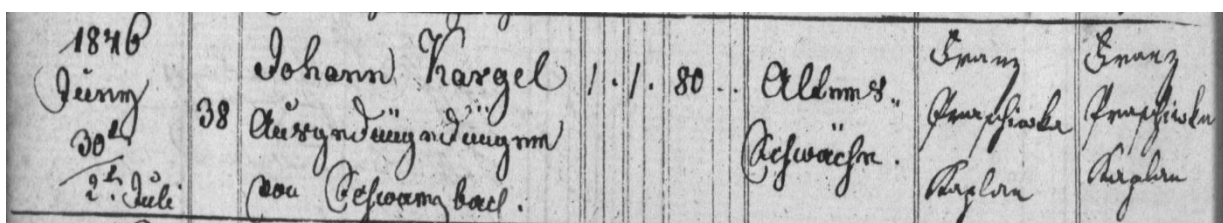 1846
Juny
30t
2t. Juli
38
Johann Kargel
Ausgedüngedüngner
von Schwarzbach.
1. 1. 80 ..
Alters„
Schwäche.
Franz
Praschinka
Kaplan
Franz
Praschinka
Kaplan